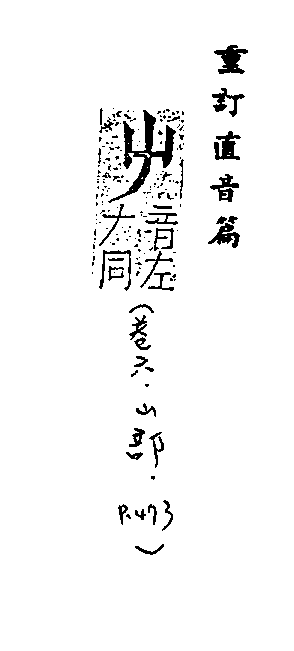 重訂直音篇
音左
𠂇同
(卷六·山部·P.473)